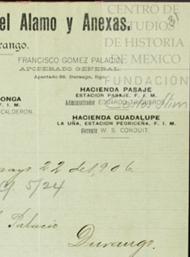 el Alamo y Anexas.
CENTRO DE
ESTUDIOS
DE HISTORIA
DE MEXICO
FUNDACIÓN
Carlos Slim
urango.
FRANCISCO GOMEZ PALACIO,
APODERADO GENERAL
Apartado 88. Durango, Dgo.
HACIENDA PASAJE
ESTACION PASAJE, F. I. M.
Administrador
ONGA
F. I. M.
CALDERON.
HACIENDA GUADALUPE
LA UÑA, ESTACION PEDRICEÑA, F. I. M.
Gerente W. S. CONDUIT.
mayo 22 de 1906.
5/24
Palacio
Durango.